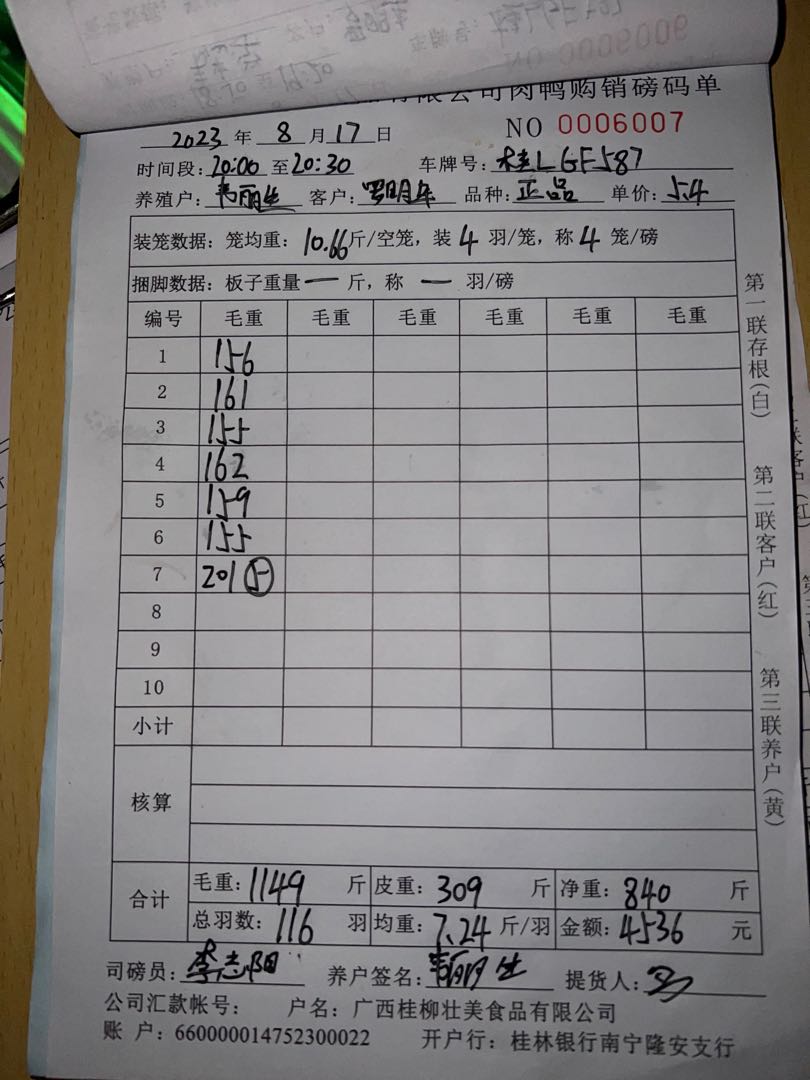 有限公司肉鸭购销磅码单
2023 年 8 月 17 日 NO 0006007
时间段: 20:00 至 20:30 车牌号: 桂LGF587
养殖户: 韦丽生 客户: 品种: 正品 单价: 5.4
装笼数据: 笼均重: 10.66 斤/空笼, 装 4 羽/笼, 称 4 笼/磅
捆脚数据: 板子重量 一 斤, 称 一 羽/磅
编号 毛重 毛重 毛重 毛重 毛重 毛重
1 156
2 161
3 155
4 162
5 159
6 155
7 201 5
8
9
10
小计
核算
合计 毛重: 1149 斤 皮重: 309 斤 净重: 840 斤
总羽数: 116 羽 均重: 7.24 斤/羽 金额: 4536 元
司磅员: 李志阳 养户签名: 韦丽生 提货人:
公司汇款帐号: 户名: 广西桂柳壮美食品有限公司
账 户: 660000014752300022 开户行: 桂林银行南宁隆安支行
第一联存根(白) 第二联客户(红) 第三联养户(黄)